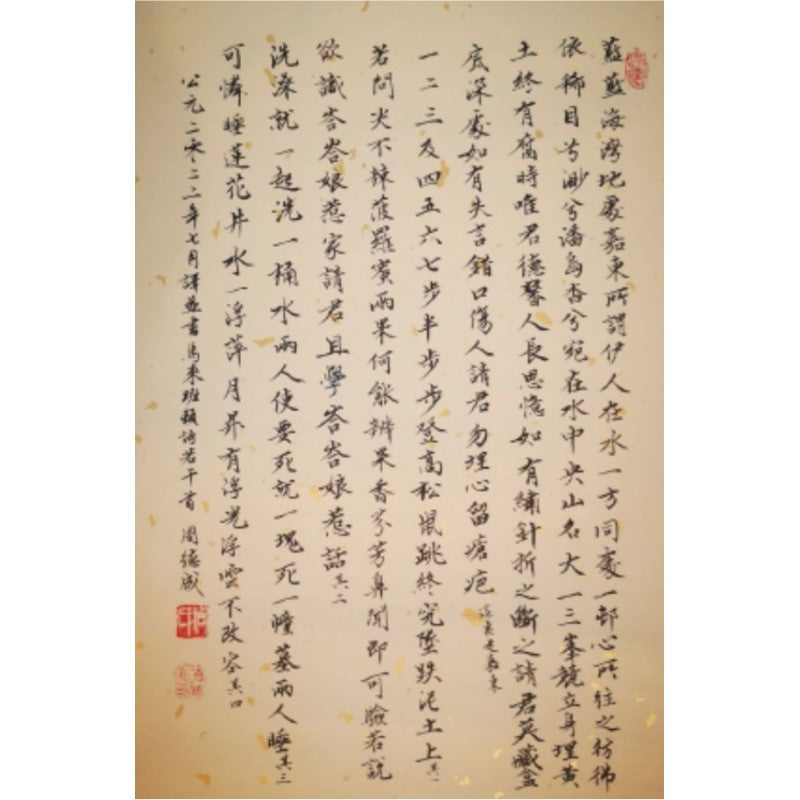 藍藍海灣地處嘉東所謂伊人在水一方同處一邨心所往之彷彿
依稀目兮渺兮潘島杳兮宛在水中央山名大一三峯競立身埋黄
土終有腐時唯君德馨人長思憶如有繡針折之斷之請君莫藏盒
底深處如有失言錯口傷人請君勿埋心留瘡疤
一二三及四五六七步半步步登高松鼠跳終究墮跌泥土上其一
若問尖不辣菠羅賓兩果何能辨果香芬芳鼻聞即可驗若説
欲識峇峇娘惹家請君且學峇峇娘惹話其二
洗澡就一起洗一桶水兩人使要死就一塊死一幢墓兩人睡其三
可憐睡蓮花井水一浮萍月昇有浮光浮雲不改容其四
公元二零二二年七月譯並書馬來班頓詩若干首 周德成